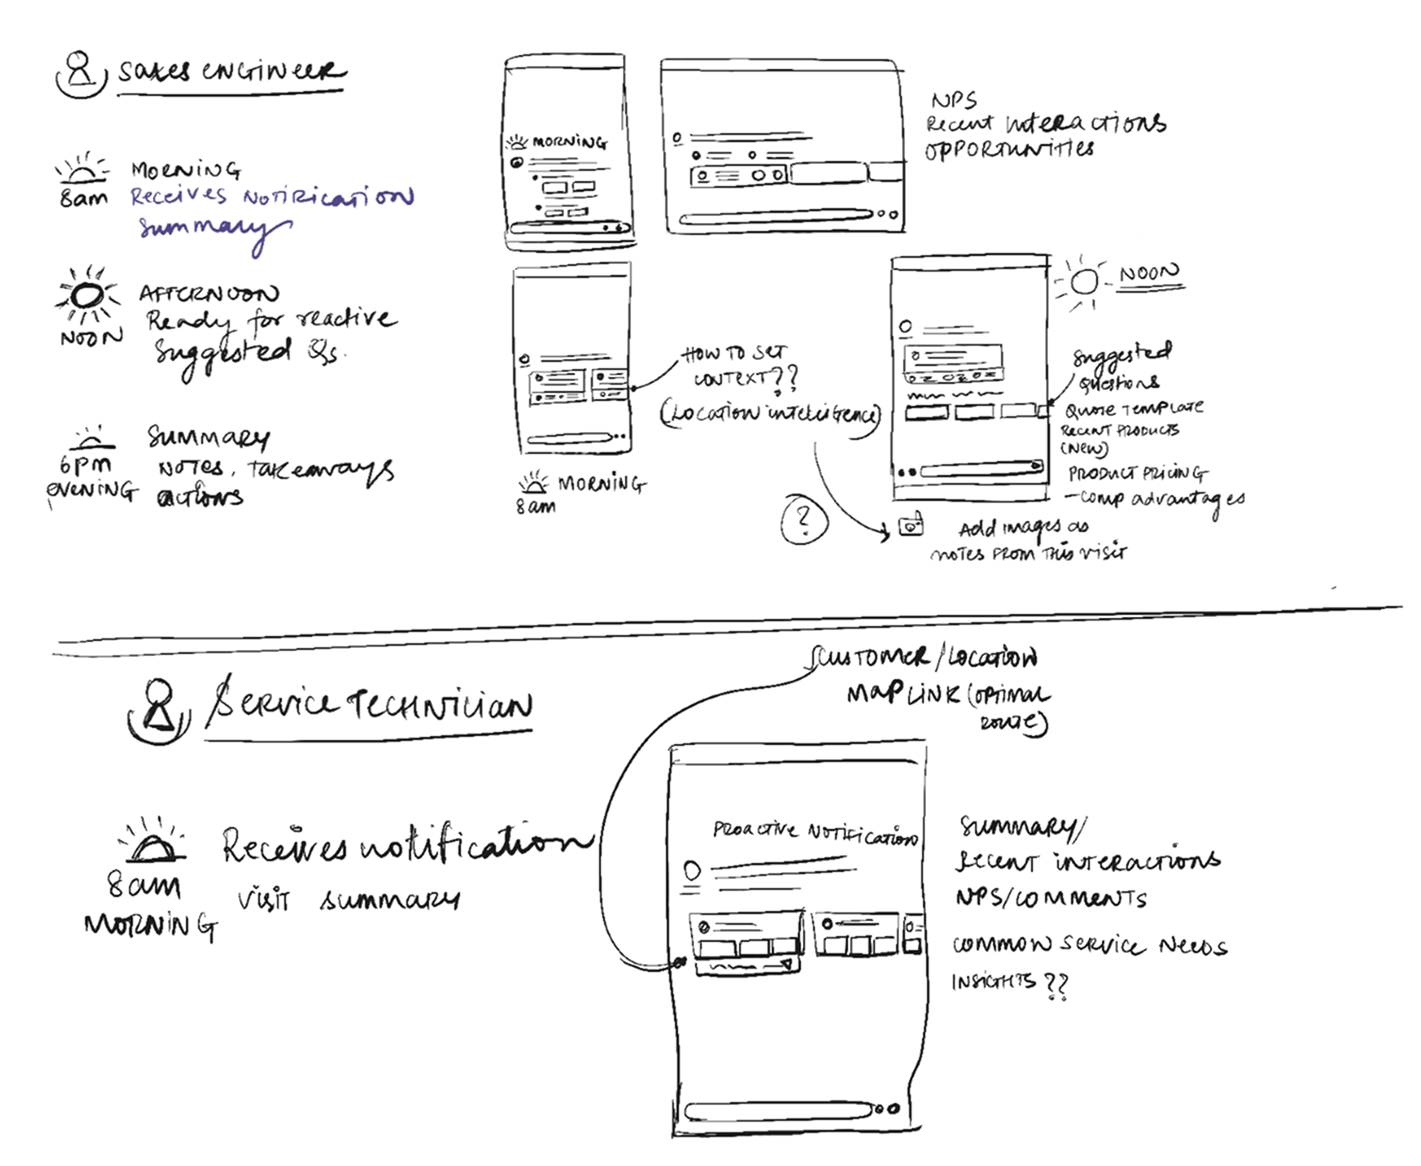 SALES ENGINEER
MORNING
8am
RECEIVES NOTIFICATION
Summary
AFTERNOON
NOON
Ready for reactive
Suggested Qs.
SUMMARY
6PM
EVENING
NOTES, TAKEAWAYS
ACTIONS
MORNING
NPS
RECENT INTERACTIONS
OPPORTUNITIES
HOW TO SET
CONTEXT??
(LOCATION INTELLIGENCE)
MORNING
8am
NOON
Suggested
QUESTIONS
QUOTE TEMPLATE
RECENT PRODUCTS
(NEW)
PRODUCT PRICING
-COMP ADVANTAGES
?
Add images as
NOTES FROM THIS VISIT
SERVICE TECHNICIAN
8am
MORNING
Receives notification
VISIT SUMMARY
CUSTOMER/LOCATION
MAP LINK (OPTIMAL
ROUTE)
PROACTIVE NOTIFICATION
SUMMARY/
RECENT INTERACTIONS
NPS/COMMENTS
COMMON SERVICE NEEDS
INSIGHTS ??